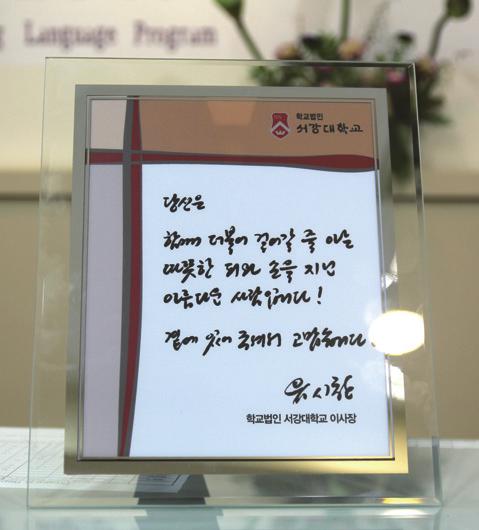 Language Program
학교법인
서강대학교
당신은
함께 더불어 걸어갈 줄 아는
따뜻한 피와 손을 지닌
아름다운 사람입니다!
곁에 있어 주셔서 고맙습니다
유시찬
학교법인 서강대학교 이사장